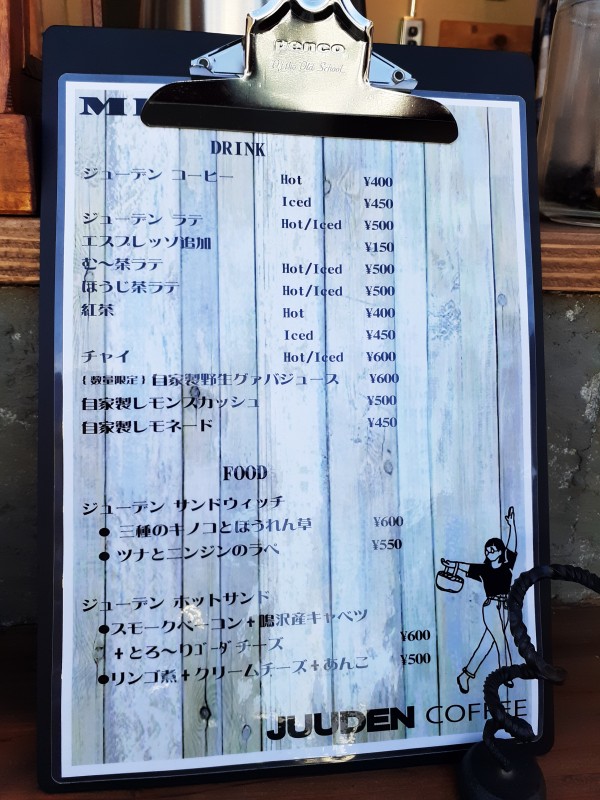 penco
Of the Old School
DRINK
ジューデン コーヒー Hot ¥400
Iced ¥450
ジューデン ラテ Hot/Iced ¥500
エスプレッソ追加 ¥150
む〜茶ラテ Hot/Iced ¥500
ほうじ茶ラテ Hot/Iced ¥500
紅茶 Hot ¥400
Iced ¥450
チャイ Hot/Iced ¥600
(数量限定) 自家製野生グァバジュース ¥600
自家製レモンスカッシュ ¥500
自家製レモネード ¥450
FOOD
ジューデン サンドウィッチ
● 三種のキノコとほうれん草 ¥600
● ツナとニンジンのラペ ¥550
ジューデン ホットサンド
●スモークベーコン+鳴沢産キャベツ
+とろ〜りゴーダチーズ ¥600
●リンゴ煮+クリームチーズ+あんこ ¥500
JUUDEN COFFEE